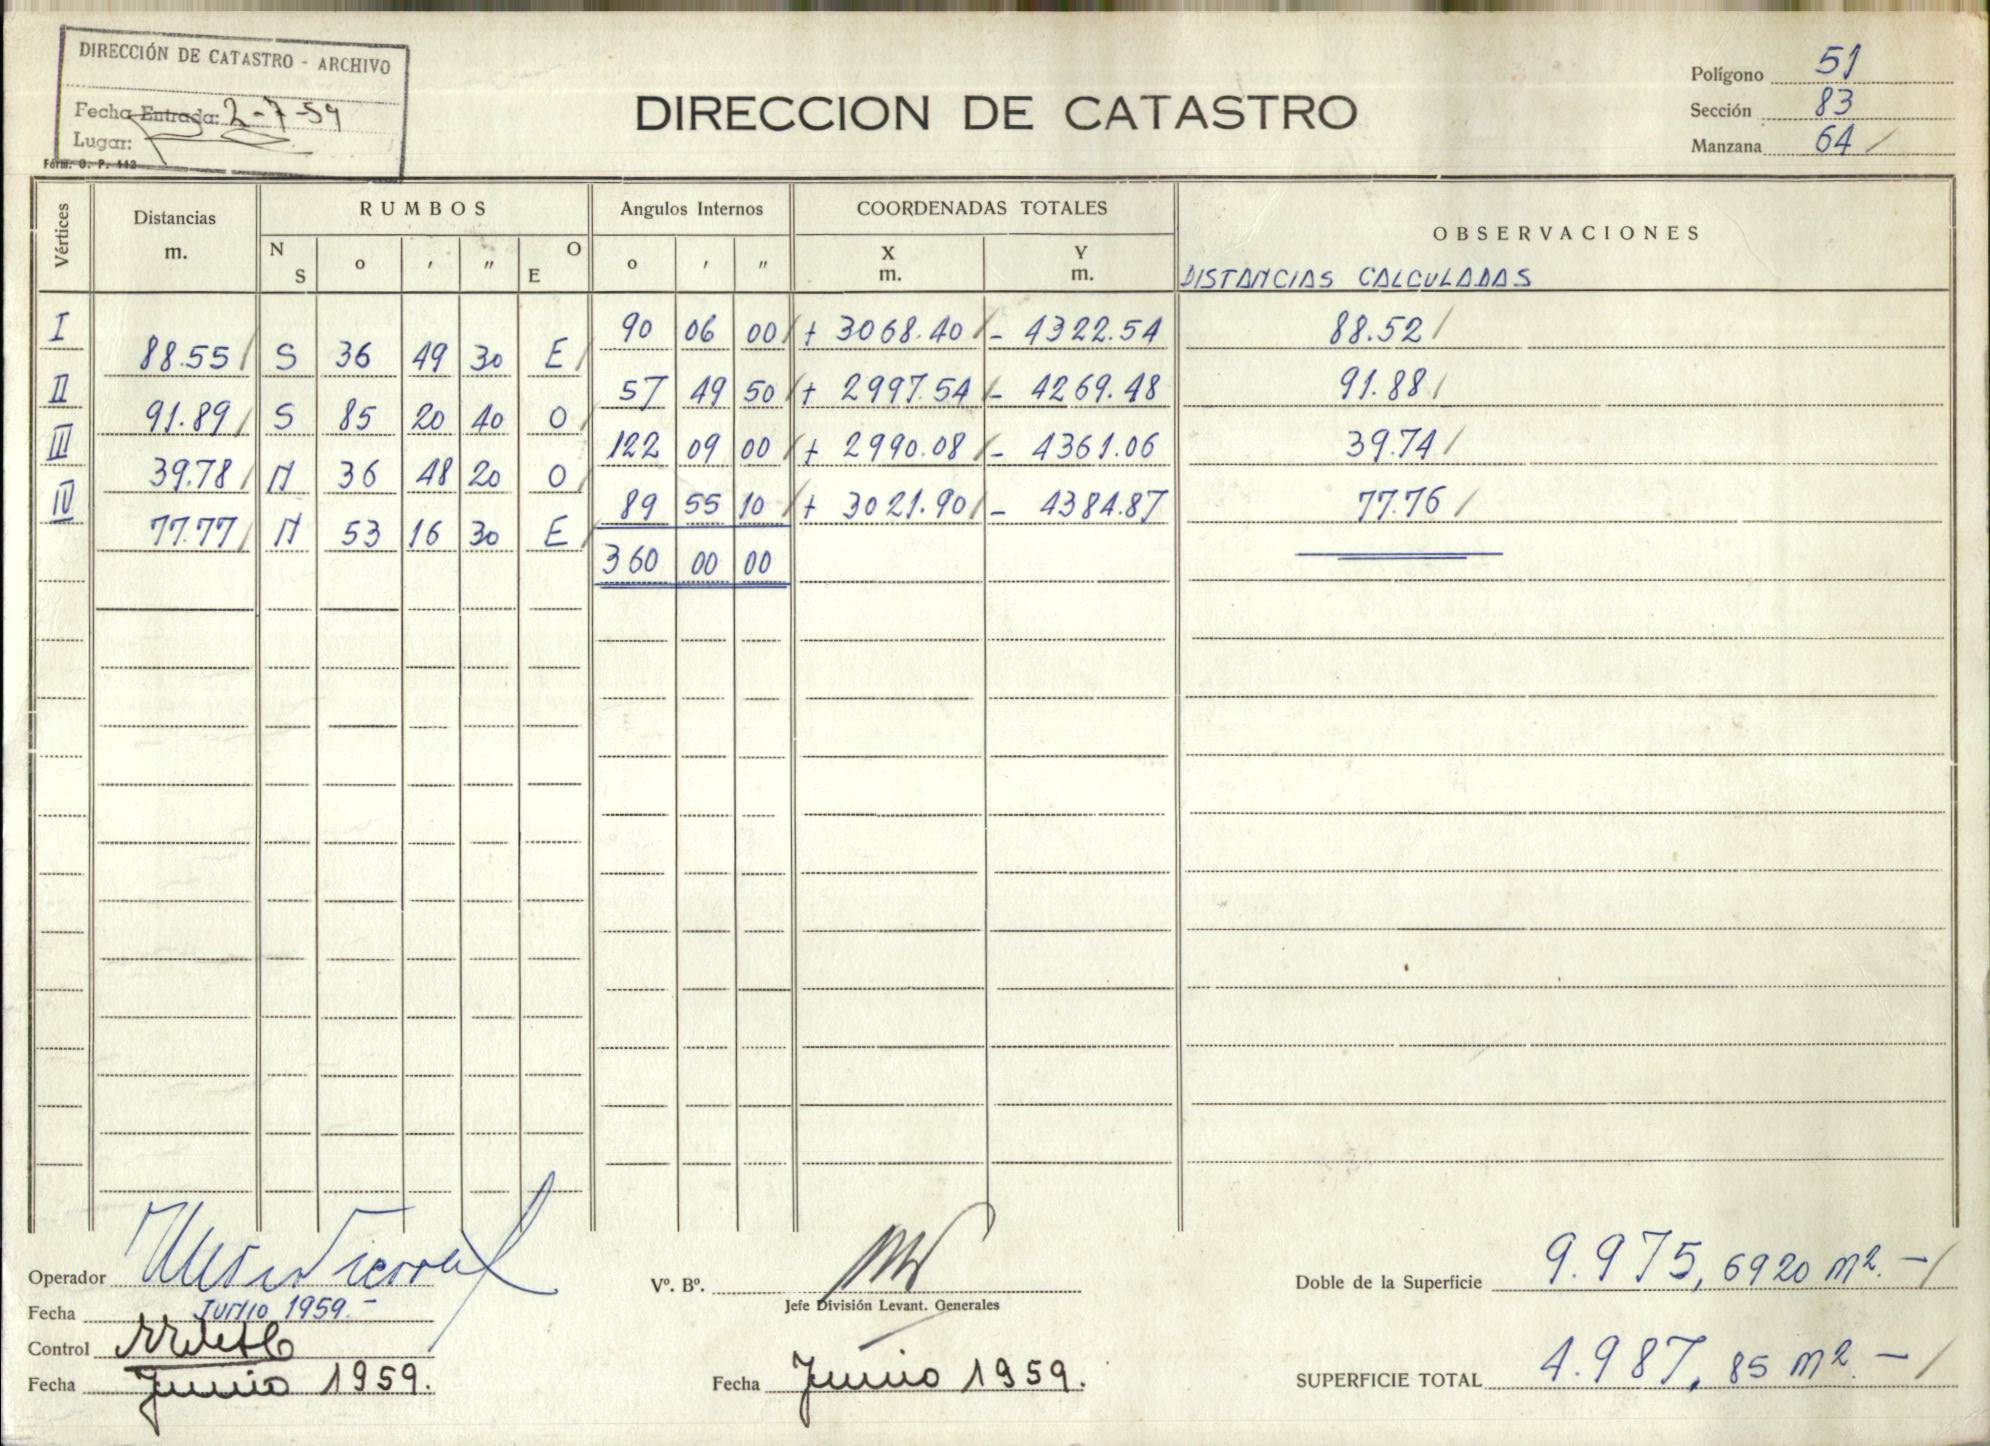 DIRECCIÓN DE CATASTRO - ARCHIVO
Fecha Entrada: 2-7-59
Lugar:
Form. O. P. 443
DIRECCION DE CATASTRO
Polígono 51
Sección 83
Manzana 64 /
Vértices
Distancias m.
RUMBOS
N S o ' " O E
Angulos Internos
o ' "
COORDENADAS TOTALES
X m. Y m.
OBSERVACIONES
DISTANCIAS CALCULADAS
I 90 06 00 / + 3068.40 / - 4322.54 88.52 /
88.55 / S 36 49 30 E /
II 57 49 50 / + 2997.54 / - 4269.48 91.88 /
91.89 / S 85 20 40 O /
III 122 09 00 / + 2990.08 / - 4361.06 39.74 /
39.78 / N 36 48 20 O /
IV 89 55 10 / + 3021.90 / - 4384.87 77.76 /
77.77 / N 53 16 30 E /
360 00 00
Operador
Fecha Junio 1959.-
Control
Fecha Junio 1959.
Vº. Bº.
Jefe División Levant. Generales
Fecha Junio 1959.
Doble de la Superficie 9.975,6920 m2.- /
SUPERFICIE TOTAL 4.987,85 m2 - /